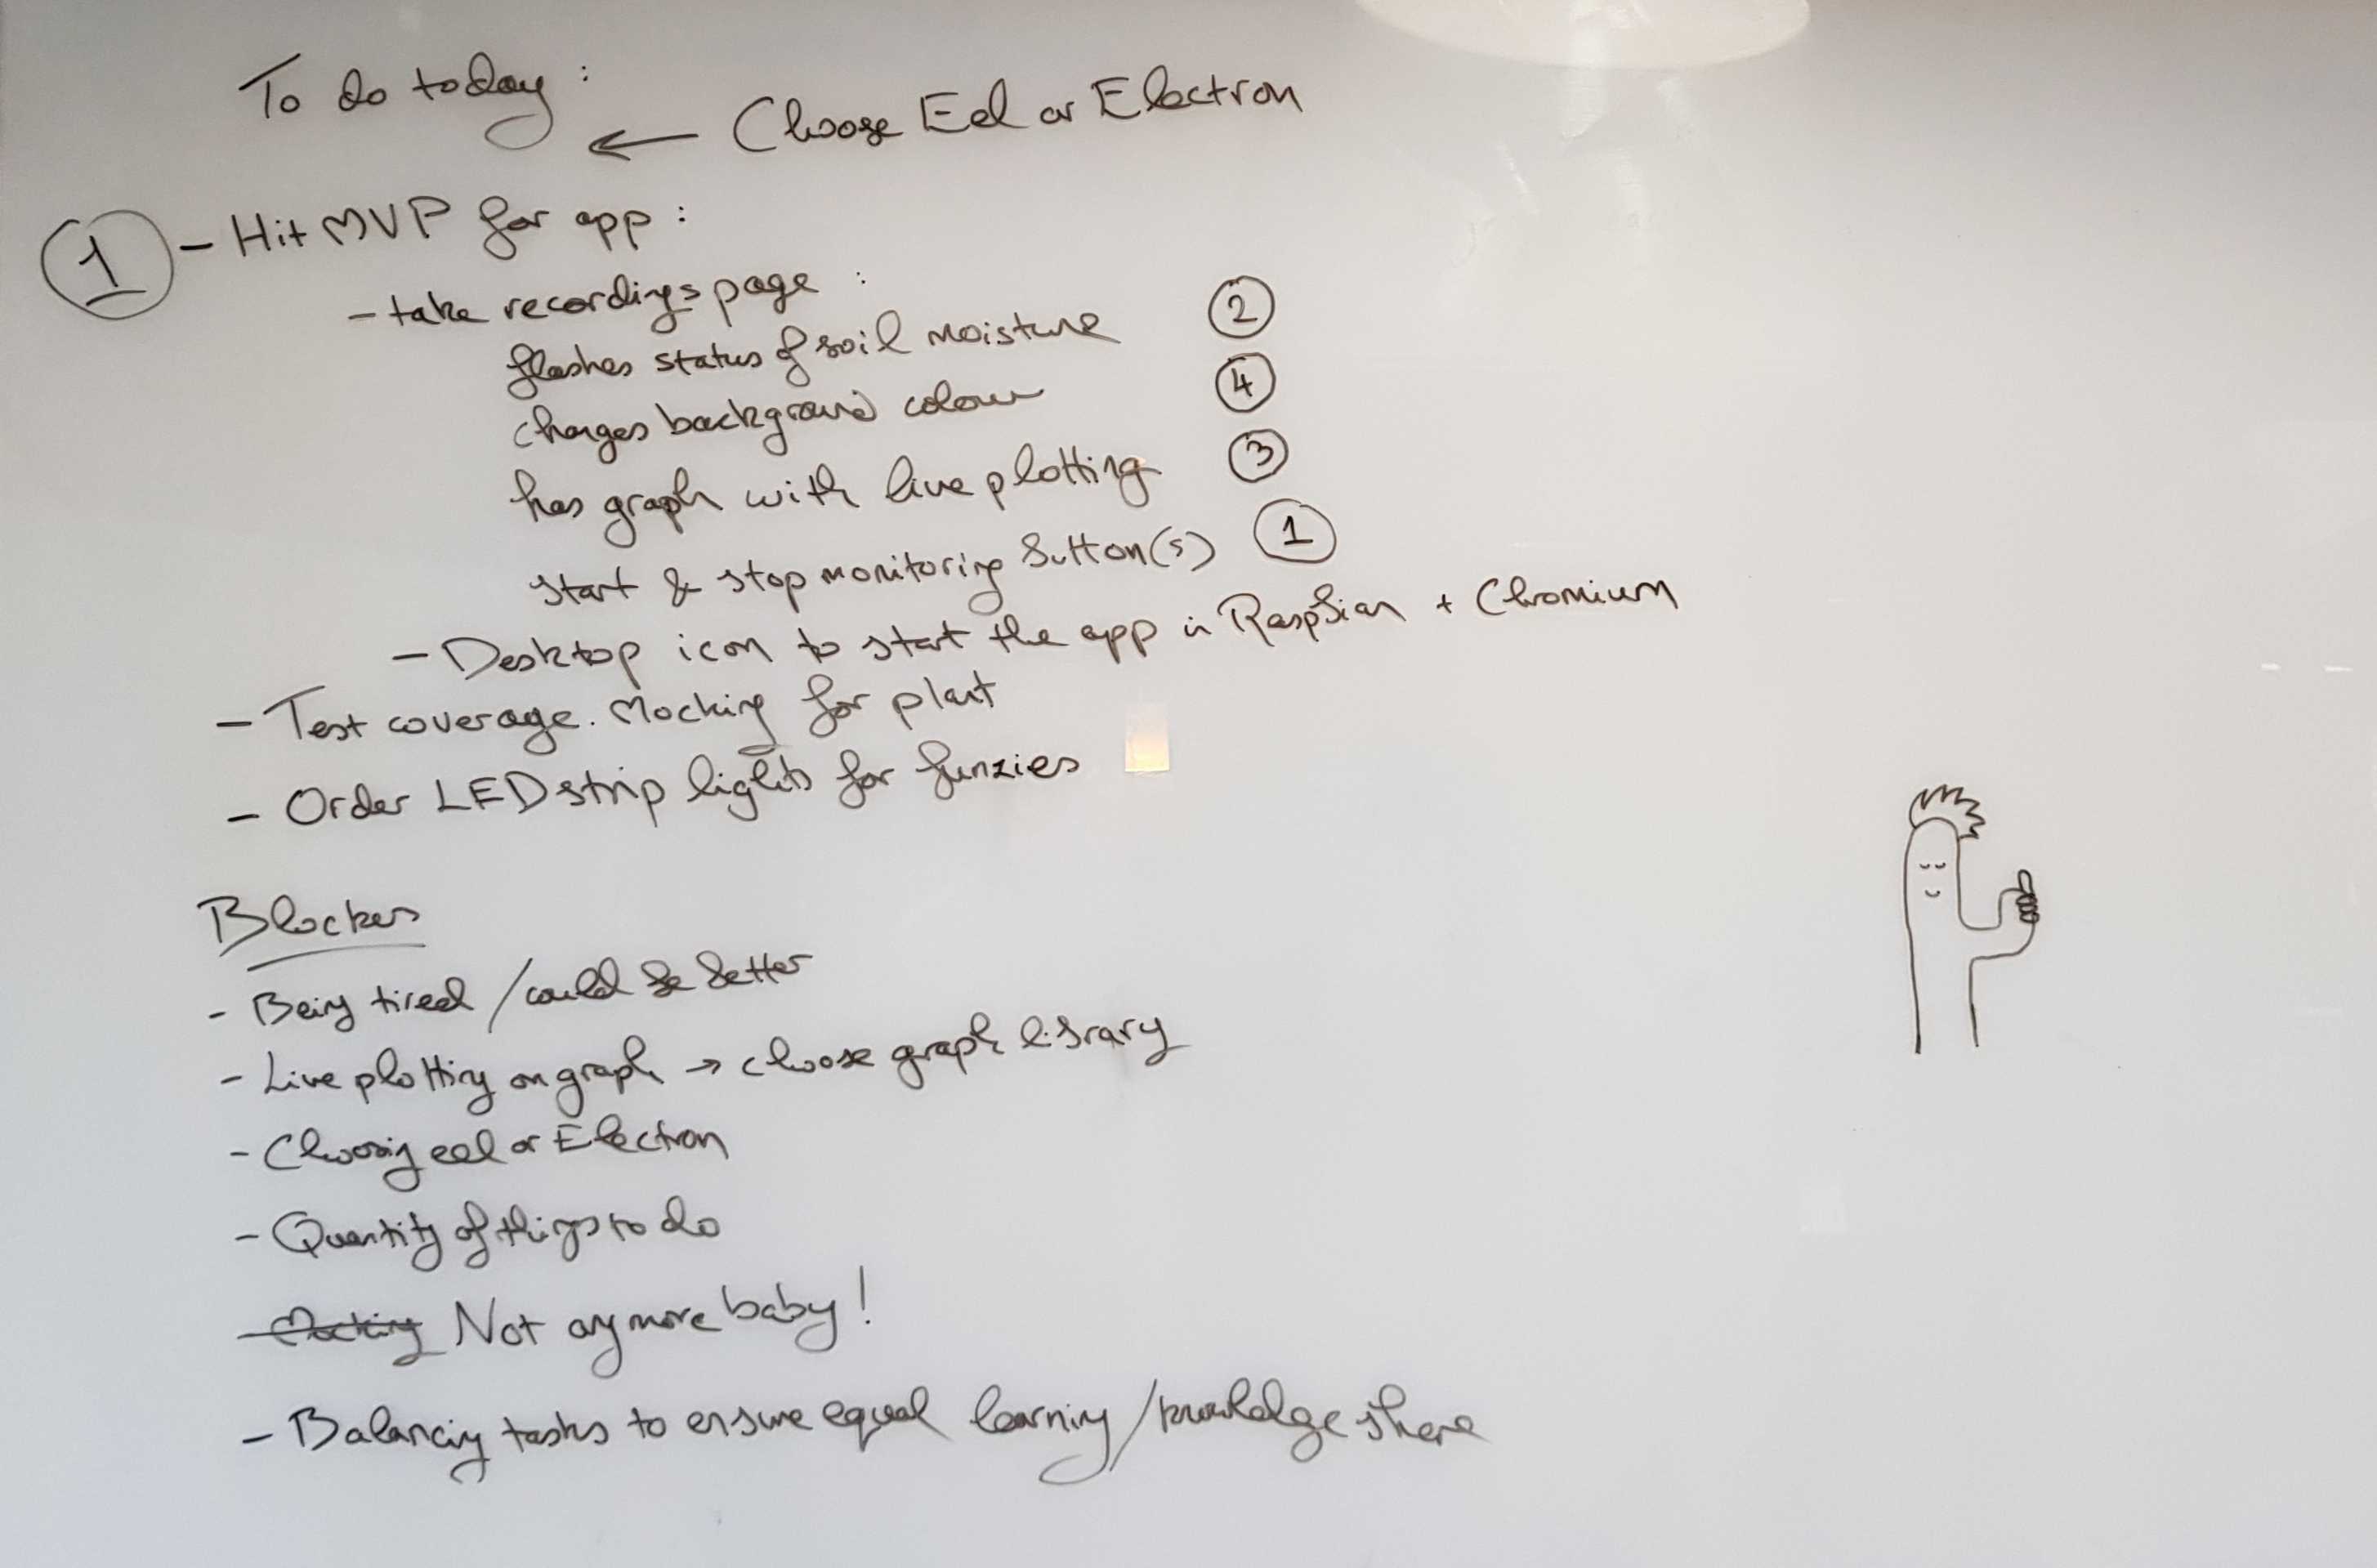 To do today :
← Choose Eel or Electron
① - Hit MVP for app :
- take recordings page :
flashes status of soil moisture ②
changes background colour ④
has graph with live plotting ③
start & stop monitoring button(s) ①
- Desktop icon to start the app in Raspbian + Chromium
- Test coverage. Mocking for plant
- Order LED strip lights for funzies
Blockers
- Being tired / could be better
- Live plotting on graph → choose graph library
- Choosing eel or Electron
- Quantity of things to do
- Mocking Not anymore baby!
- Balancing tasks to ensure equal learning / knowledge share